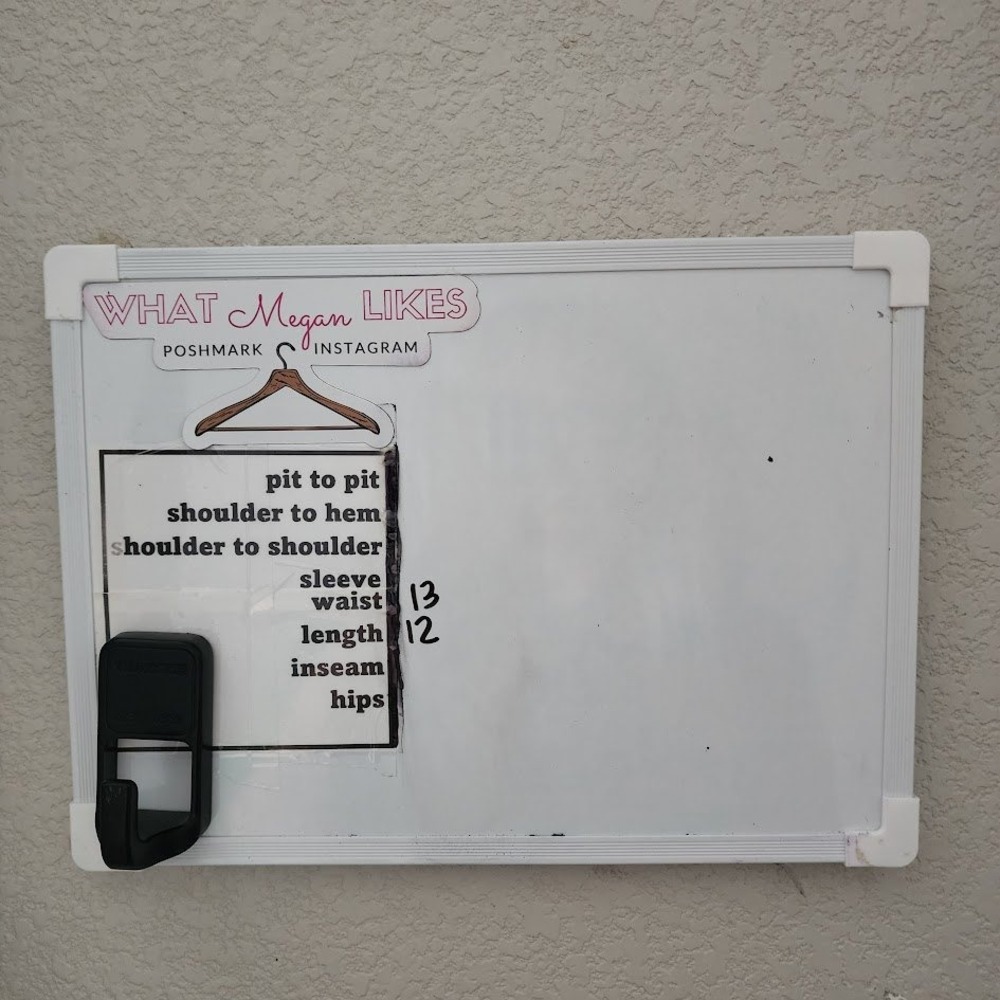 WHAT Megan LIKES
POSHMARK INSTAGRAM
pit to pit
shoulder to hem
shoulder to shoulder
sleeve
waist 13
length 12
inseam
hips